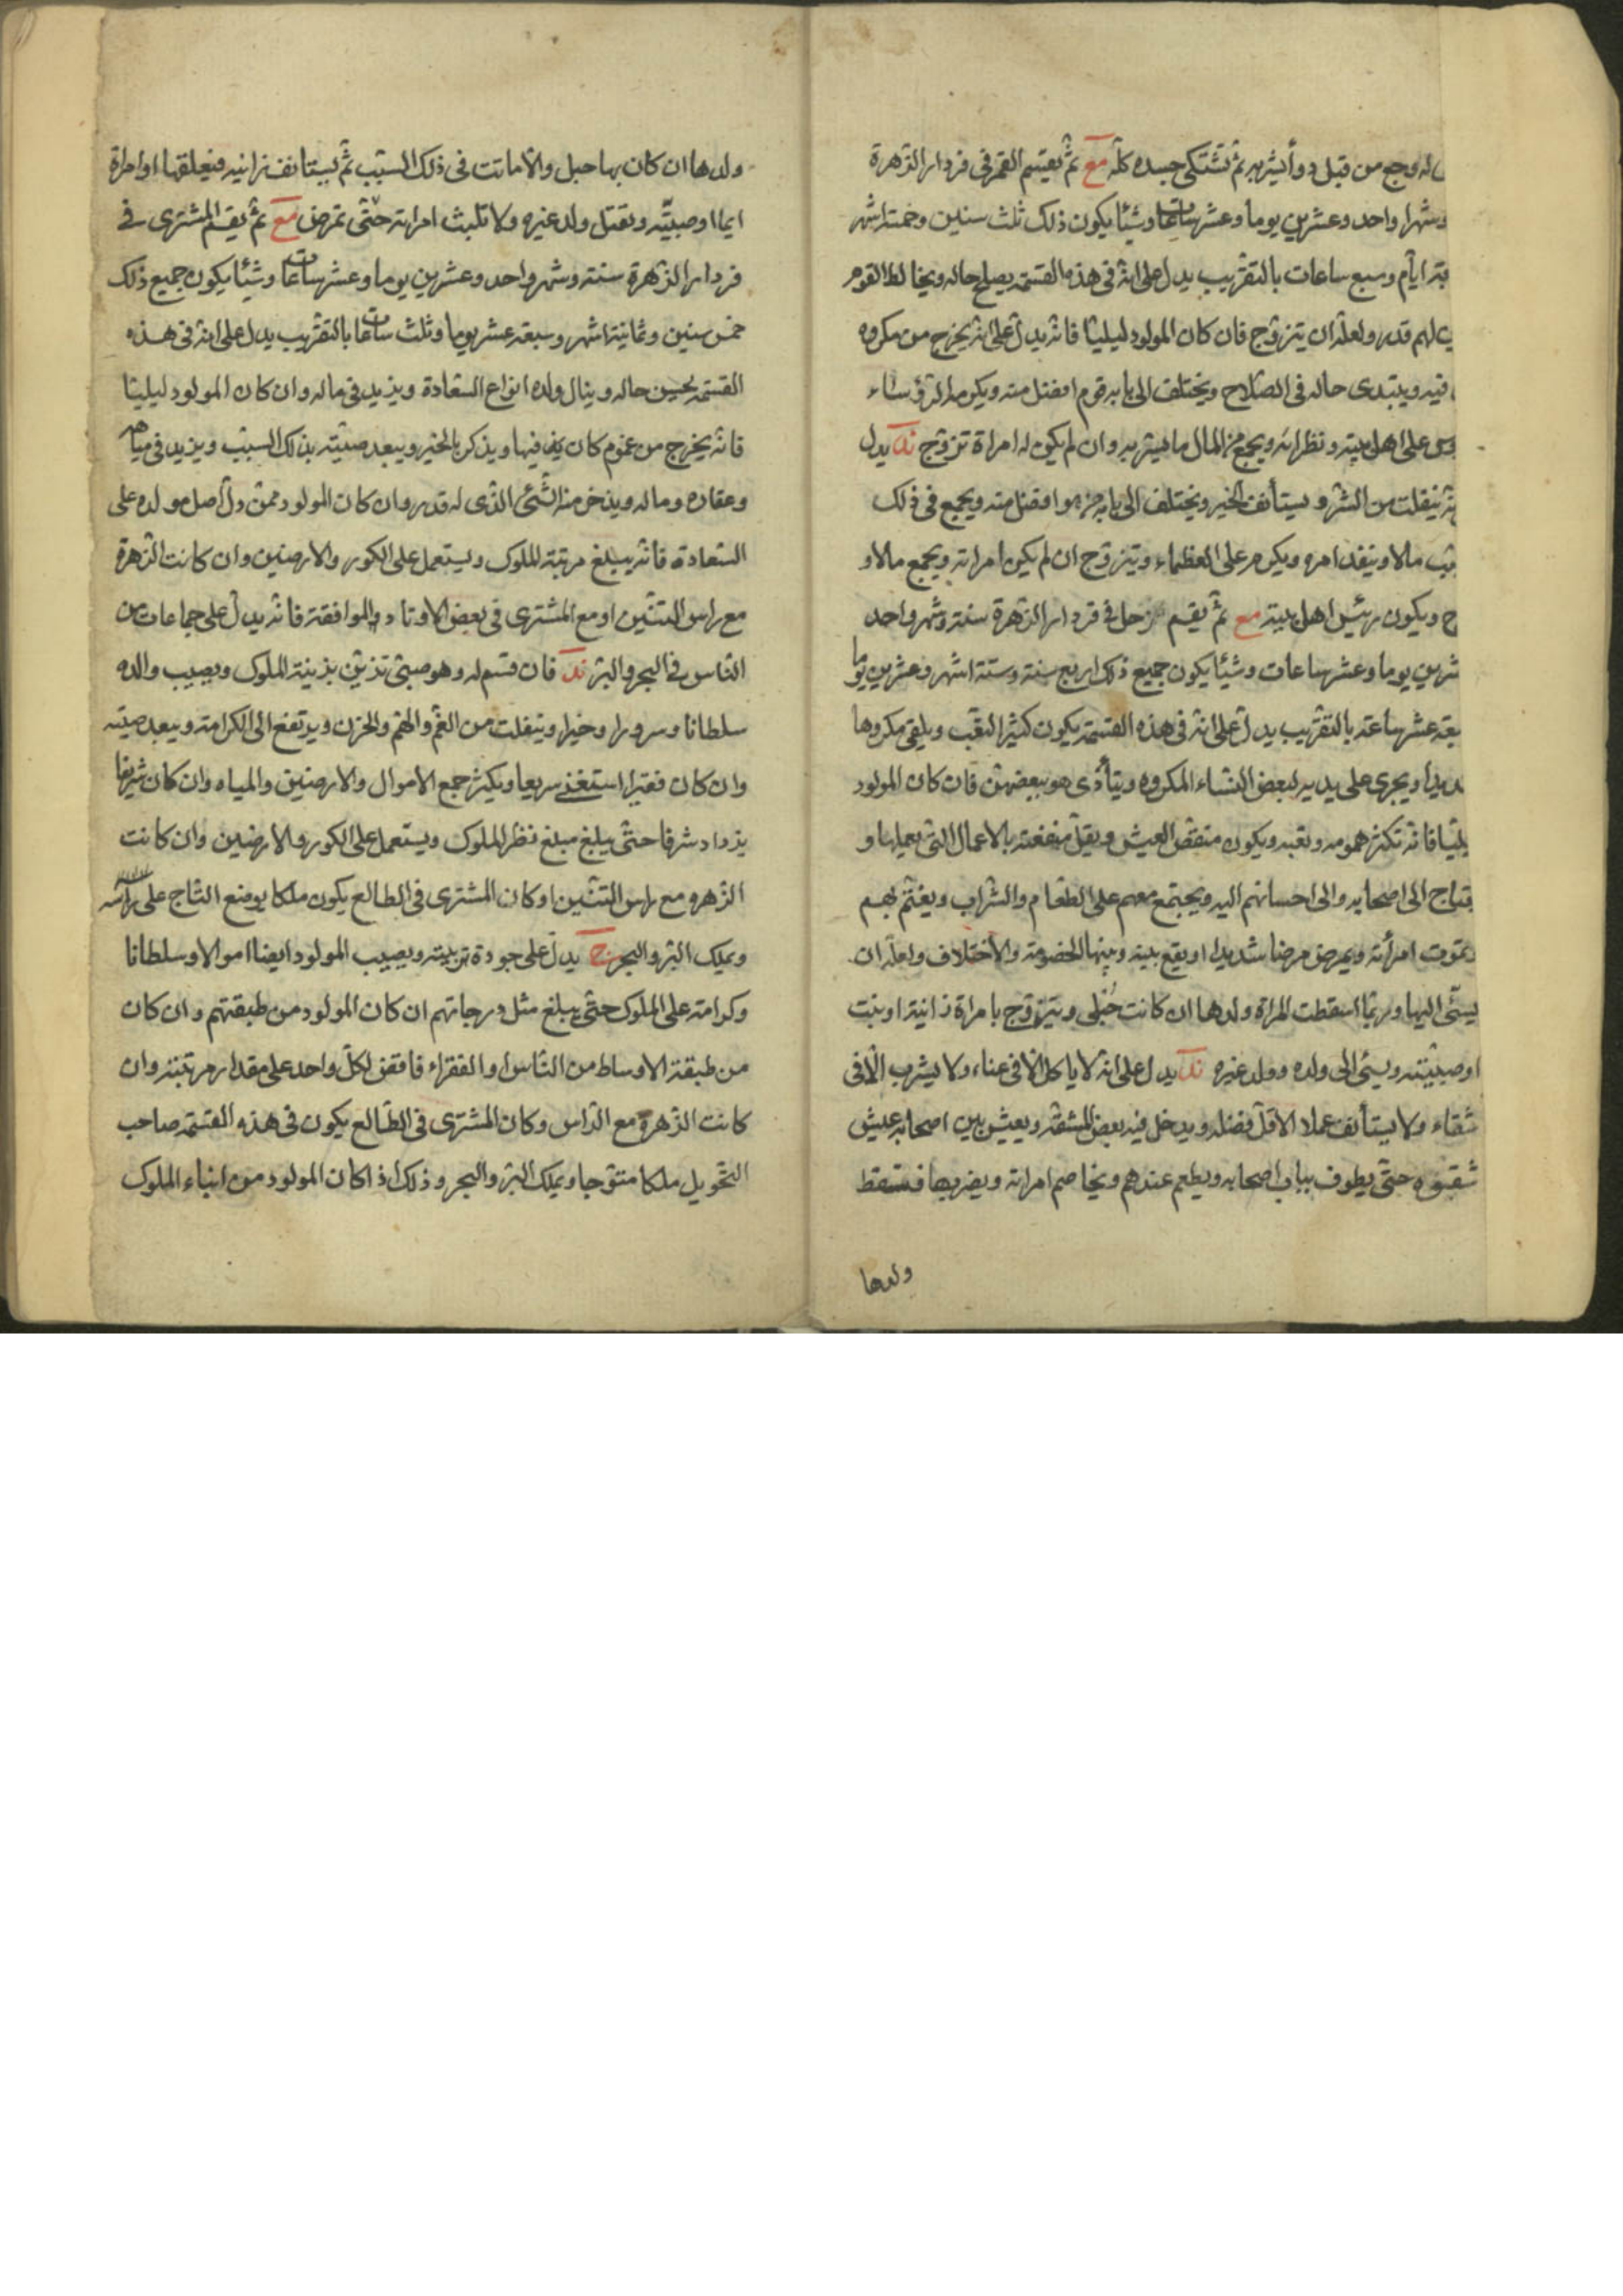 له وجع من قبل دوأ يشربه ثم تشتكى جسده كلّه مع ثم يقسم القمر فى فردار الزهرة
وشهرا واحد وعشرين يوما وعشر ساعات وشيئا يكون ذلك ثلث سنين وخمسة اشهر
ايّام وسبع ساعات بالتقريب يدل على انه فى هذه القسمة يصلح حاله ويخالط القوم
لهم قدر ولعلّه ان يتزوّج فان كان المولود ليليّا فانّه يدلّ على انه يخرج من مكروه
فيه ويبتدى حاله فى الصّلاح ويختلف الى بابه قوم افضل منه ويكرمه الرؤساء
على اهل بيته ونظرائه ويجمع من المال ما يشربه وان لم يكن له امراة تزوّج ند يدل
ينفلت من الشر ويستأنف الخير ويختلف الى بابه من هو افضل منه ويجمع فى ذلك
مالا وينفذ امره ويكرم على العظماء ويتزوّج ان لم يكن امراته ويجمع مالا و
ويكون رئيس اهل بيته مع ثم يقسم زحل فى فردار الزهرة سنة وشهر واحد
يوما وعشر ساعات وشيئا يكون جميع ذلك اربع سنة وستة اشهر وعشرين يوما
عشر ساعة بالتقريب يدلّ على انه فى هذه القسمة يكون كثير التّعب ويلقى مكروها
ويجرى على يديه لبعض النساء المكروه ويتأذّى هو ببعضهنّ فان كان المولود
فانّه تكثر همومه وتعبه ويكون منقّص العيش ويقلّ منفعته بالاعمال التى يعملها و
الى اصحابه والى احسانهم اليه ويجتمع معهم على الطعام والشراب ويغتم بهم
تموت امرأته ويمرض مرضا شديدا او يقع بينه وبينها الخصومة والاختلاف ولعلّه ان
يسئى اليها وربّما اسقطت المراة ولدها ان كانت حُبلى ويتزوّج بامراة زانية او بنت
او صبيّته ويسئى الى ولده وولد غيره ند يدل على انه لا ياكل الّا فى عناء ولا يشرب الّا فى
شقاء ولا يستأنف عملا الا قلّ فضله ويدخل فيه بعض المشقّة ويعيش بين اصحابه عيش
شقوه حتّى يطوف بباب اصحابه ويطعم عندهم ويخاصم امراته ويضربها فتسقط
ولدها
ولدها ان كان بها حبل والّا ماتت فى ذلك السّبب ثم يستانف زانيه فيعلقها او امراة
ايما او صبيّته ويقتل ولد غيره ولا تلبث امراته حتّى تمرض مع ثم يقسم المشترى فى
فردار الزهرة سنة وشهر واحد وعشرين يوما وعشر ساعات وشيئا يكون جميع ذلك
خمس سنين وثمانية اشهر وسبعة عشر يوما وثلث ساعات بالتقريب يدل على انه فى هذه
القسمة يحسن حاله وينال ولده انواع السّعادة ويزيد فى ماله وان كان المولود ليليّا
فانّه يخرج من غموم كان فيها ويذكر بالخير ويبعد صيته بذلك السبب ويزيد فى مياهه
وعقاره وماله ويذخر منه الشّئ الذى له قدر وان كان المولود ممن دلّ اصل مولده على
السّعادة فانّه يبلغ مرتبة الملوك ويستعمل على الكور والارضين وان كانت الزهرة
مع راس التّنين او مع المشترى فى بعض الاوتاد والموافقة فانّه يدلّ على جماعات من
الناس فى البحر والبرّ ند فان قسم له وهو صبىّ تزيّن بزينة الملوك ويصيب والده
سلطانا وسرورا وخيرا وينفلت من الغمّ والهمّ والحزن ويرتفع الى الكرامة ويبعد صيته
وان كان فقيرا استغنى سريعا ويكثر جمع الاموال والارضين والمياه وان كان شريفا
يزداد شرفا حتّى يبلغ مبلغ نظر الملوك ويستعمل على الكور والارضين وان كانت
الزهره مع راس التّنين او كان المشترى فى الطالع يكون ملكا يوضع التّاج على راسه
ويملك البرّ والبحر نح يدلّ على جودة تربيته ويصيب المولود ايضا اموالا وسلطانا
وكرامة على الملوك حتّى يبلغ مثل درجاتهم ان كان المولود من طبقتهم وان كان
من طبقة الاوساط من النّاس او الفقراء فاقض لكلّ واحد على مقدار مرتبته وان
كانت الزهرة مع الراس وكان المشترى فى الطّالع يكون فى هذه القسمة صاحب
التّحويل ملكا متوّجا ويملك البرّ والبحر وذلك اذا كان المولود من ابناء الملوك